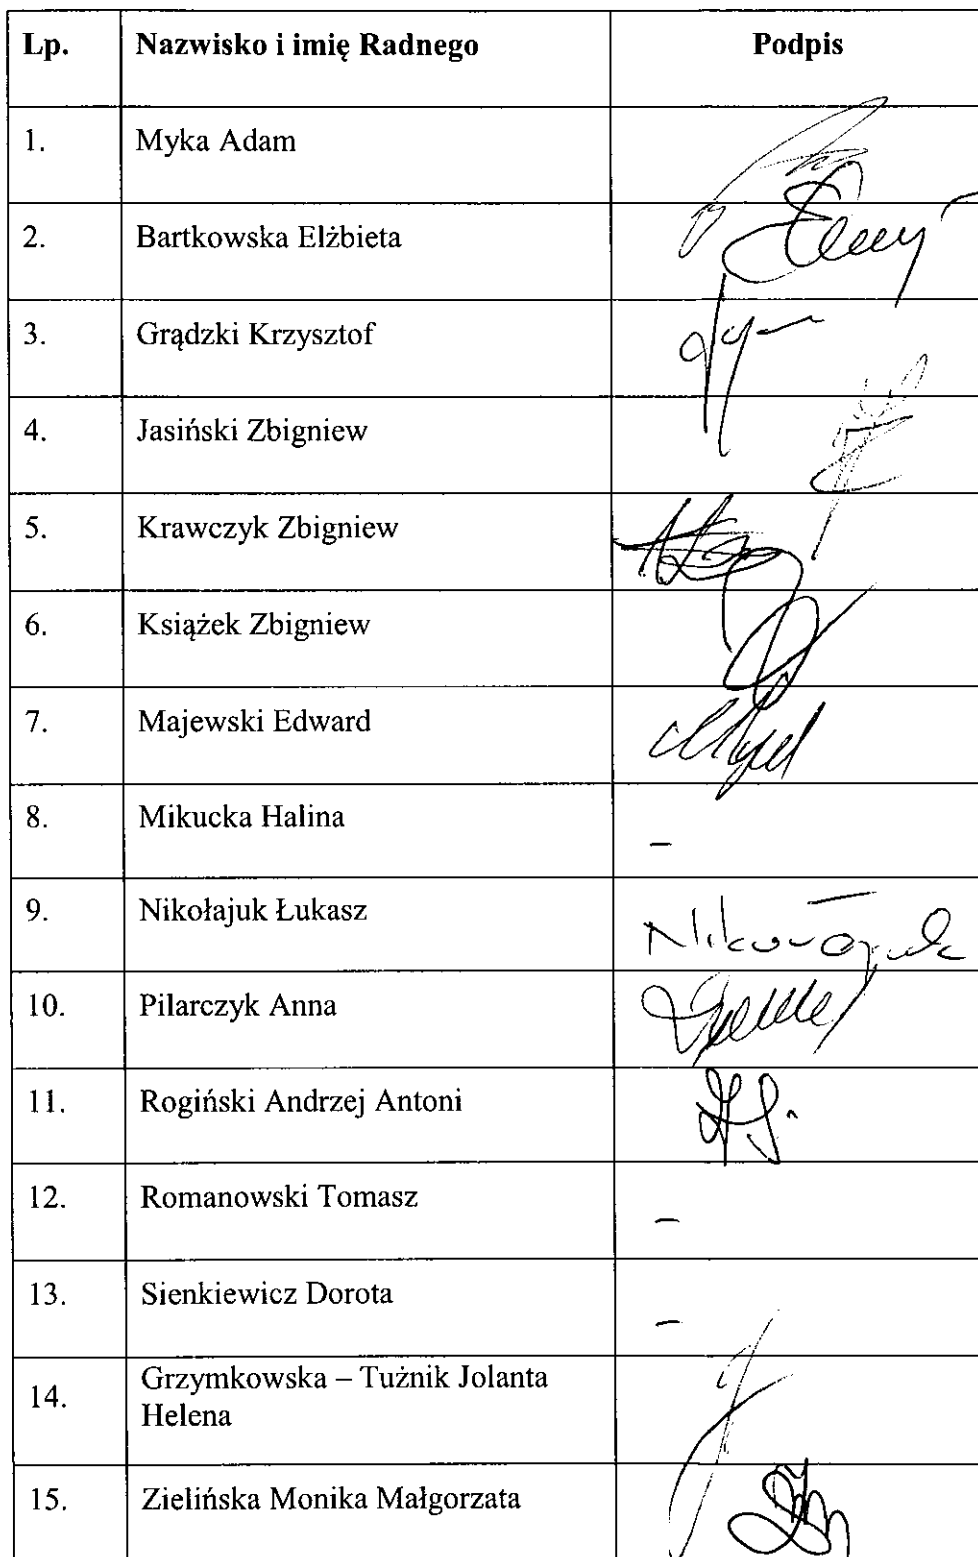 Lp. Nazwisko i imię Radnego Podpis
1. Myka Adam
2. Bartkowska Elżbieta
3. Grądzki Krzysztof
4. Jasiński Zbigniew
5. Krawczyk Zbigniew
6. Książek Zbigniew
7. Majewski Edward
8. Mikucka Halina –
9. Nikołajuk Łukasz
10. Pilarczyk Anna
11. Rogiński Andrzej Antoni
12. Romanowski Tomasz –
13. Sienkiewicz Dorota –
14. Grzymkowska – Tużnik Jolanta
Helena
15. Zielińska Monika Małgorzata